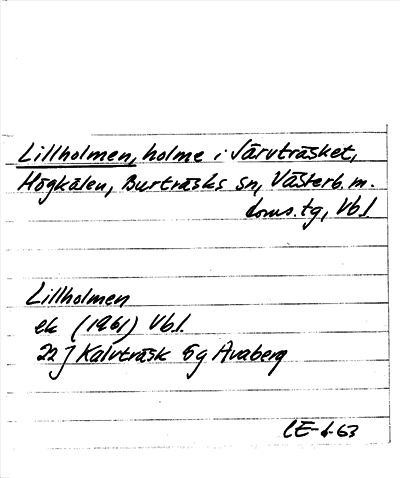 Lillholmen, holme i Järvträsket,
Högkälen, Burträsks sn, Västerb. m.
doms. tg, Vbl.
Lillholmen
ek (1961) Vbl.
22 J Kalvträsk 5g Avaberg
CE-t-63